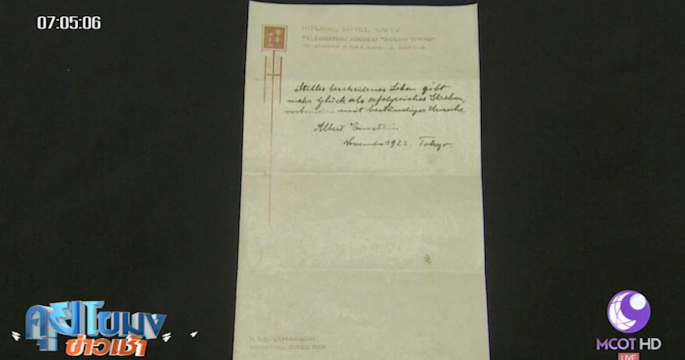 07:05:06
IMPERIAL HOTEL TOKYO
TELEGRAPHIC ADDRESS
Stilles bescheidenes Leben gibt
mehr Glück als erfolgreiches Streben,
verbunden mit beständiger Unruhe.
Albert Einstein
November 1922. Tokyo.
YAMAGUCHI
DIRECTOR
คุยโขมง
ข่าวเช้า
MCOT HD
LIVE